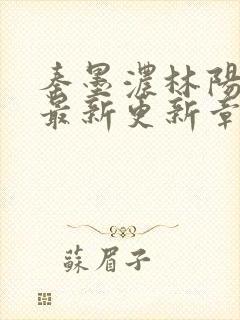 秦墨濃林陽
最新更新章
蘇眉子